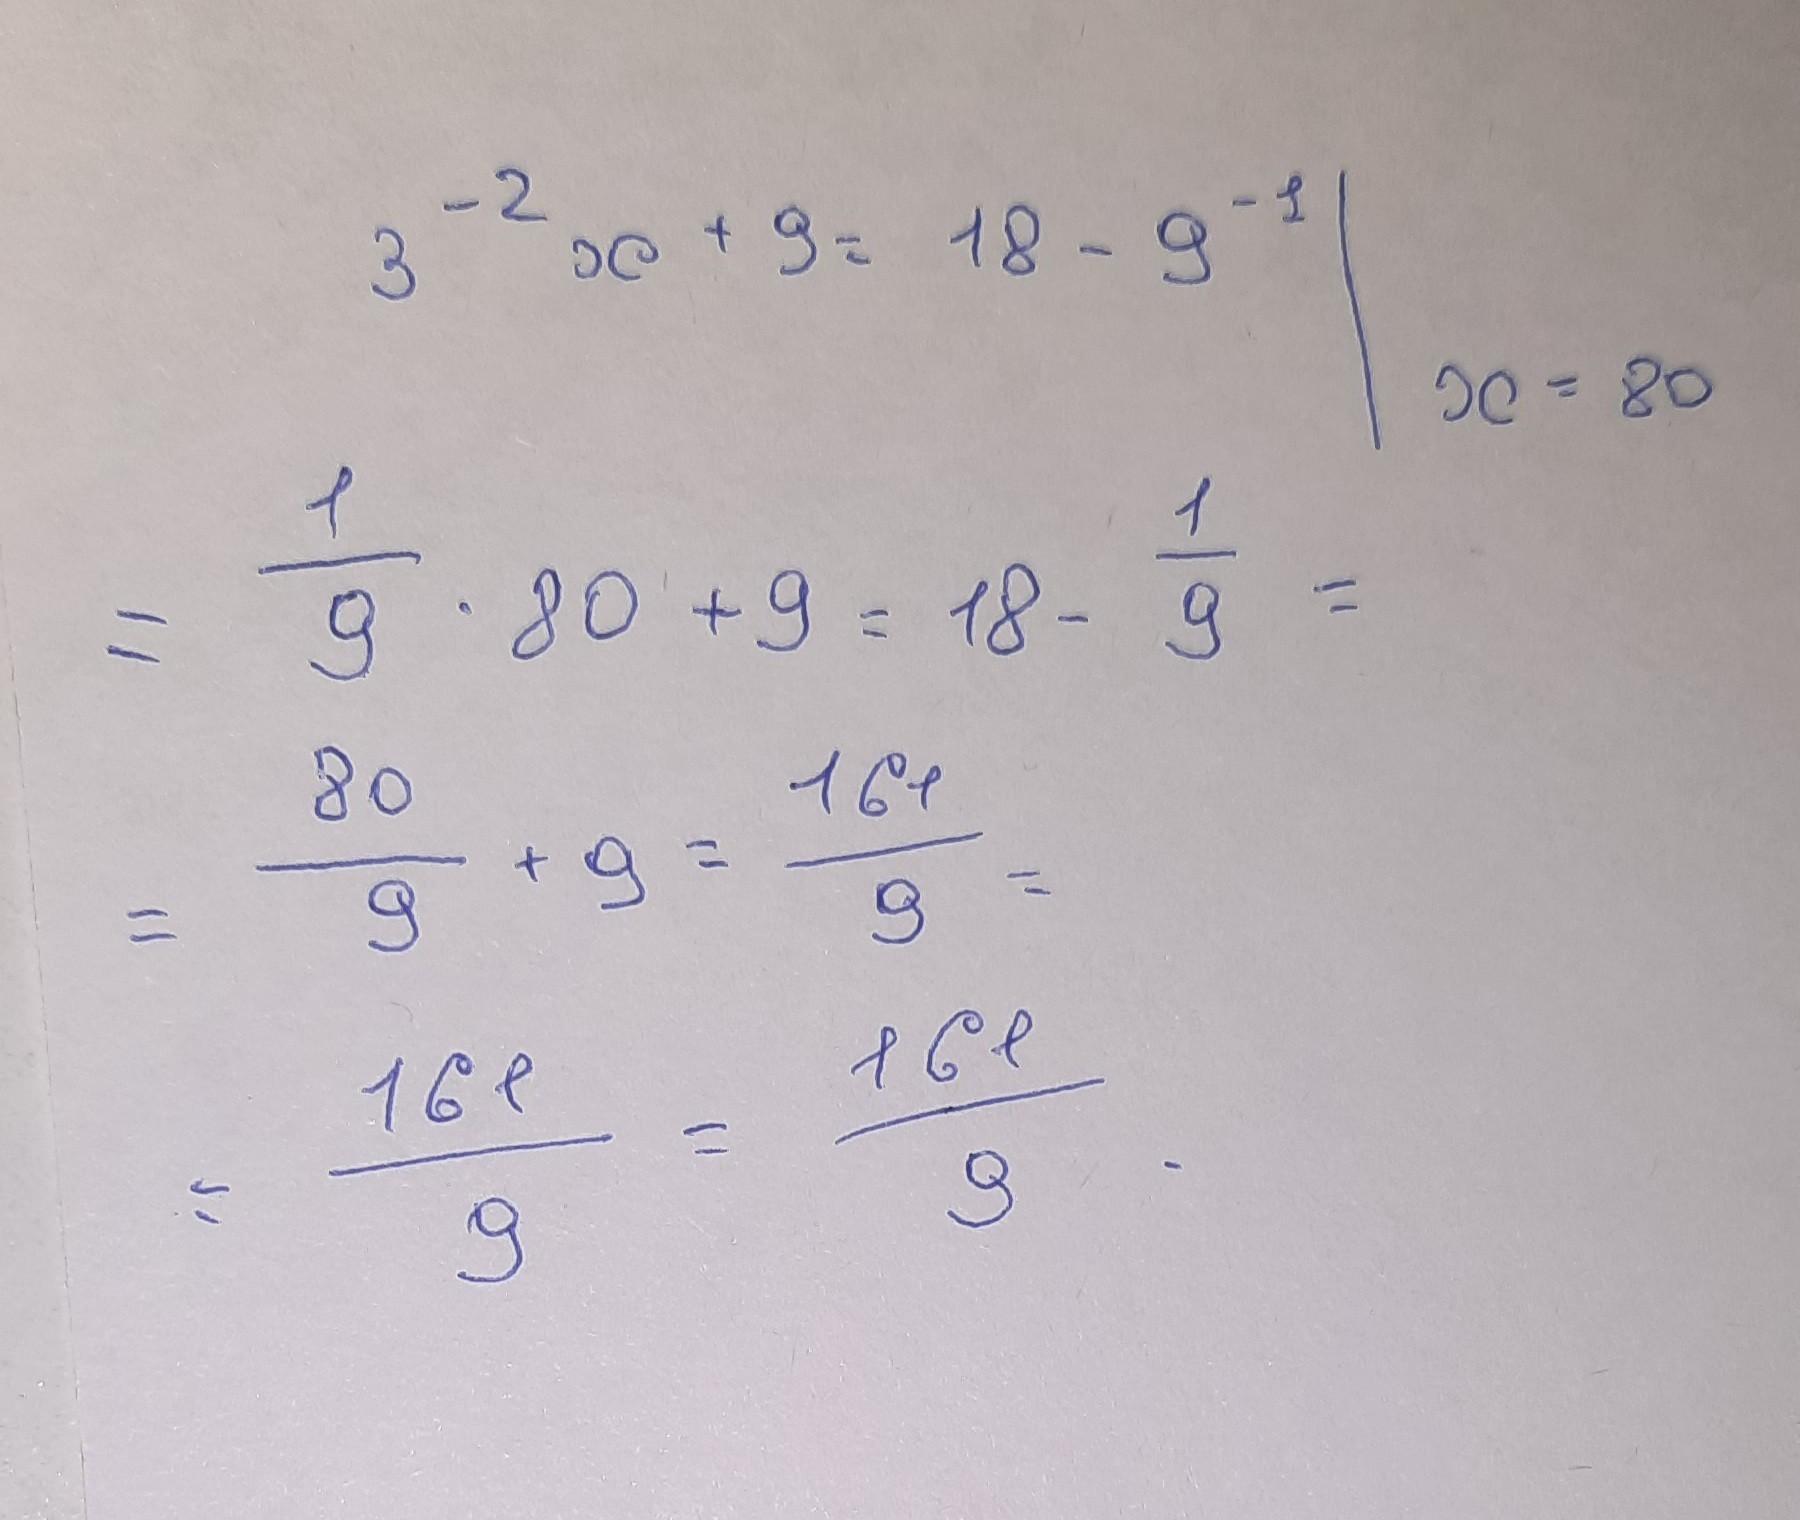 3⁻² x + 9 = 18 - 9⁻¹ | x = 80
= 1/9 · 80 + 9 = 18 - 1/9 =
= 80/9 + 9 = 161/9 =
= 161/9 = 161/9 .